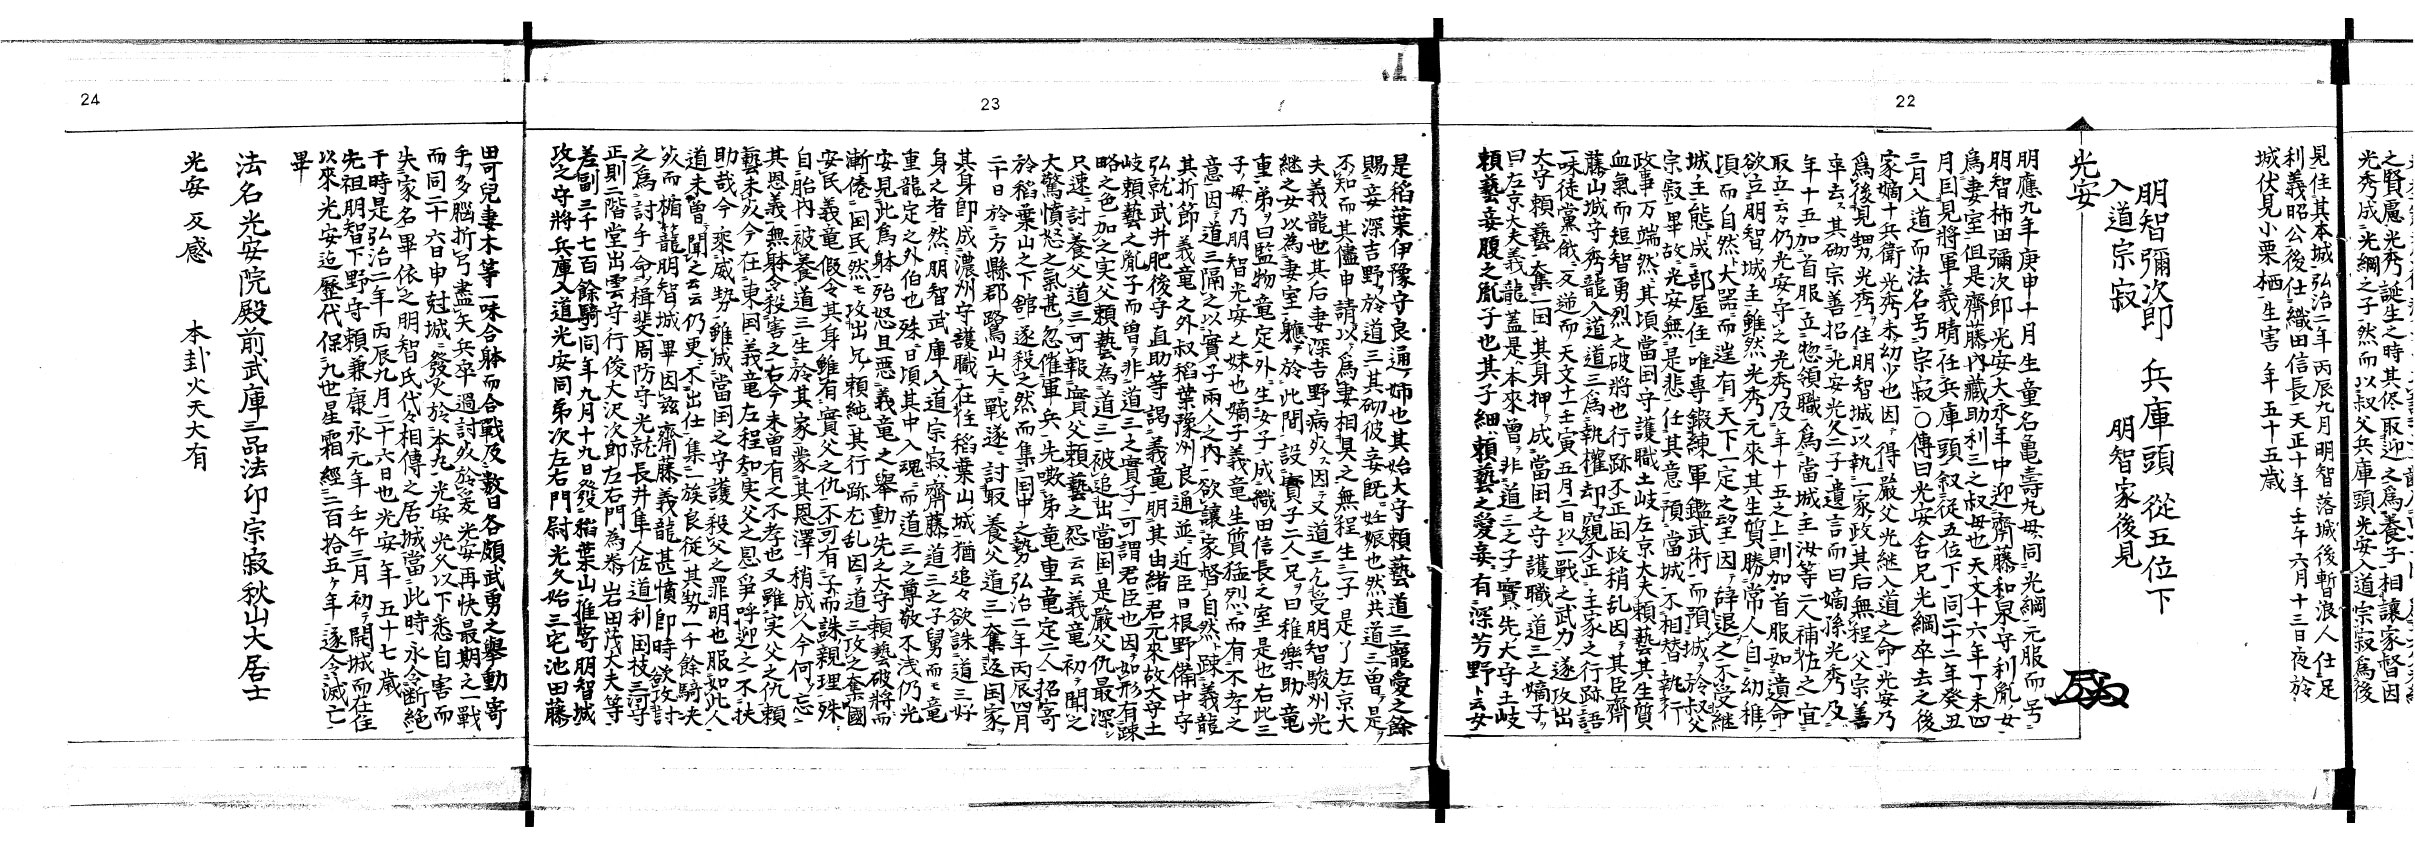 22
之賢慮光秀誕生之時其侭取迎之為養子相讓家督因
光秀成光綱之子然而以叔父兵庫頭光安入道宗寂為後
見住其本城弘治二年丙辰九月明智落城後暫浪人仕足
利義昭公後仕織田信長天正十年壬午六月十三日夜於
城伏見小栗栖生害年五十五歳
明智彌次郎 兵庫頭 從五位下
入道宗寂 明智家後見
光安
明應九年庚申十月生童名亀壽丸母同光綱元服而号
明智柿田彌次郎光安大永年中迎齊藤和泉守利胤女
為妻室但是齊藤内藏助利三之叔母也天文十六年丁未四
月囙見將軍義晴任兵庫頭叙從五位下同二十二年癸丑
三月入道而法名号宗寂〇傳曰光安舎兄光綱卒去之後
家嫡十兵衛光秀未幼少也因得嚴父光継入道之命光安乃
為後見甥光秀住明智城以執一家政其后無程父宗善
卒去其砌宗善招光安光久二子遺言而曰嫡孫光秀及
年十五加首服立惣領職為當城主汝等二人補佐之宜
取立云々仍光安守之光秀及年十五之上則加首服如遺命
欲立明智城主雖然光秀元來其生質勝常人自幼稚
頃而自然大器而逞有天下一定之望因辞退之不受継
城主態成部屋住唯專鍛練軍鑑武術而預城於叔父
宗寂畢故光安無是悲任其意預當城不相替執行
政事万端然其頃當国守護職土岐左京大夫頼藝其生質
血氣而短智勇烈之破將也行跡不正国政稍乱因其臣齊
藤山城守秀龍入道道三為執権却窺不正主家之行跡語
一味徒黨俄反逆而天文十一壬寅五月二日以一戰之武力遂攻出
太守頼藝奪一国其身押成當国之守護職道三之嫡子
曰左京大夫義龍蓋是本來曽非道三之子實先太守土岐
頼藝妾腹之胤子也其子細頼藝之愛妾有深芳野ト云女
23
是稲葉伊豫守良通姉也其始太守頼藝道三寵愛之餘
賜妾深吉野於道三其砌彼妾既妊娠也然共道三曽是
不知而其儘申請以為妻相具之無程生三子是了左京大
夫義龍也其后妻深吉野病死因又道三乞受明智駿州光
継之女以為妻室軈於此間設實子二人兄曰稚樂助竜
重弟曰監物竜定外生女子成織田信長之室是也右此三
子母乃明智光安之妹也嫡子義竜生質猛烈而有不孝之
意因道三隔之以實子兩人之内欲讓家督自然ト疎義龍
其折節義竜之外叔稲葉豫州良通並近臣日根野備中守
弘就武井肥後守直助等謁義竜明其由緒君元來故太守土
岐頼藝之胤子而曽非道三之實子可謂君臣也因如形有疎
略之色加之実父頼藝為道三被追出當国是嚴父仇最深シ
只速討養父道三可報實父頼藝之怨云云義竜初聞之
大驚憤怒之氣甚忽催軍兵先嗽弟竜重竜定二人招寄
於稲葉山之下舘遂殺之然而集国中之勢弘治二年丙辰四月
二十日於方縣郡鷺山大戰遂討取養父道三奪返国家
其身卽成濃州守護職在住稲葉山城猶追々欲誅道三好
身之者然明智武庫入道宗寂齊藤道三之子舅而モ竜
重龍定之外伯也殊日頃其中入魂而道三之尊敬不浅仍光
安見此為躰殆怒且悪義竜之舉動先之太守頼藝破將而
漸倦国民然モ攻出兄頼純其行跡尤乱因道三攻之奪國
安民義竜假令其身雖有實父之仇不可有子而誅親理殊
自胎内被養道三生於其家蒙其恩澤稍成人今何忘
其恩義無躰令殺害之右今未曽有之不孝也又雖実父之仇頼
藝未死今在東国義竜左程知実父之恩爭呼迎之不扶
助哉今乘威勢雖成當国之守護殺父之罪明也服如此人
道未曽聞之云云仍更不出仕集一族良從其勢一千餘騎決
死而楯籠明智城畢因茲齊藤義龍甚憤卽時欲攻討
之為討手命揖斐周防守光就長井隼人佐道利国枝三河守
正則二階堂出雲守行俊大沢次郎左右門為泰岩田茂大夫等
差副三千七百餘騎同年九月十九日發稲葉山推寄明智城
攻之守將兵庫入道光安同弟次左右門尉光久始三宅池田藤
24
田可兒妻木等一味合躰而合戰及數日各頗武勇之擧動寄
手多腦折弓盡矢兵卒過討死於爰光安再快最期之一戰
而同二十六日申尅城發火於本丸光安光久以下悉自害而
失家名畢依之明智氏代々相傳之居城當此時永令断絶
干時是弘治二年丙辰九月二十六日也光安年五十七歳
先祖明智下野守頼兼康永元年壬午三月初開城而在住
以來光安迄歴代保九世星霜經二百拾五ケ年遂令滅亡
畢
法名光安院殿前武庫三品法印宗寂秋山大居士
光安反感 本卦火天大有